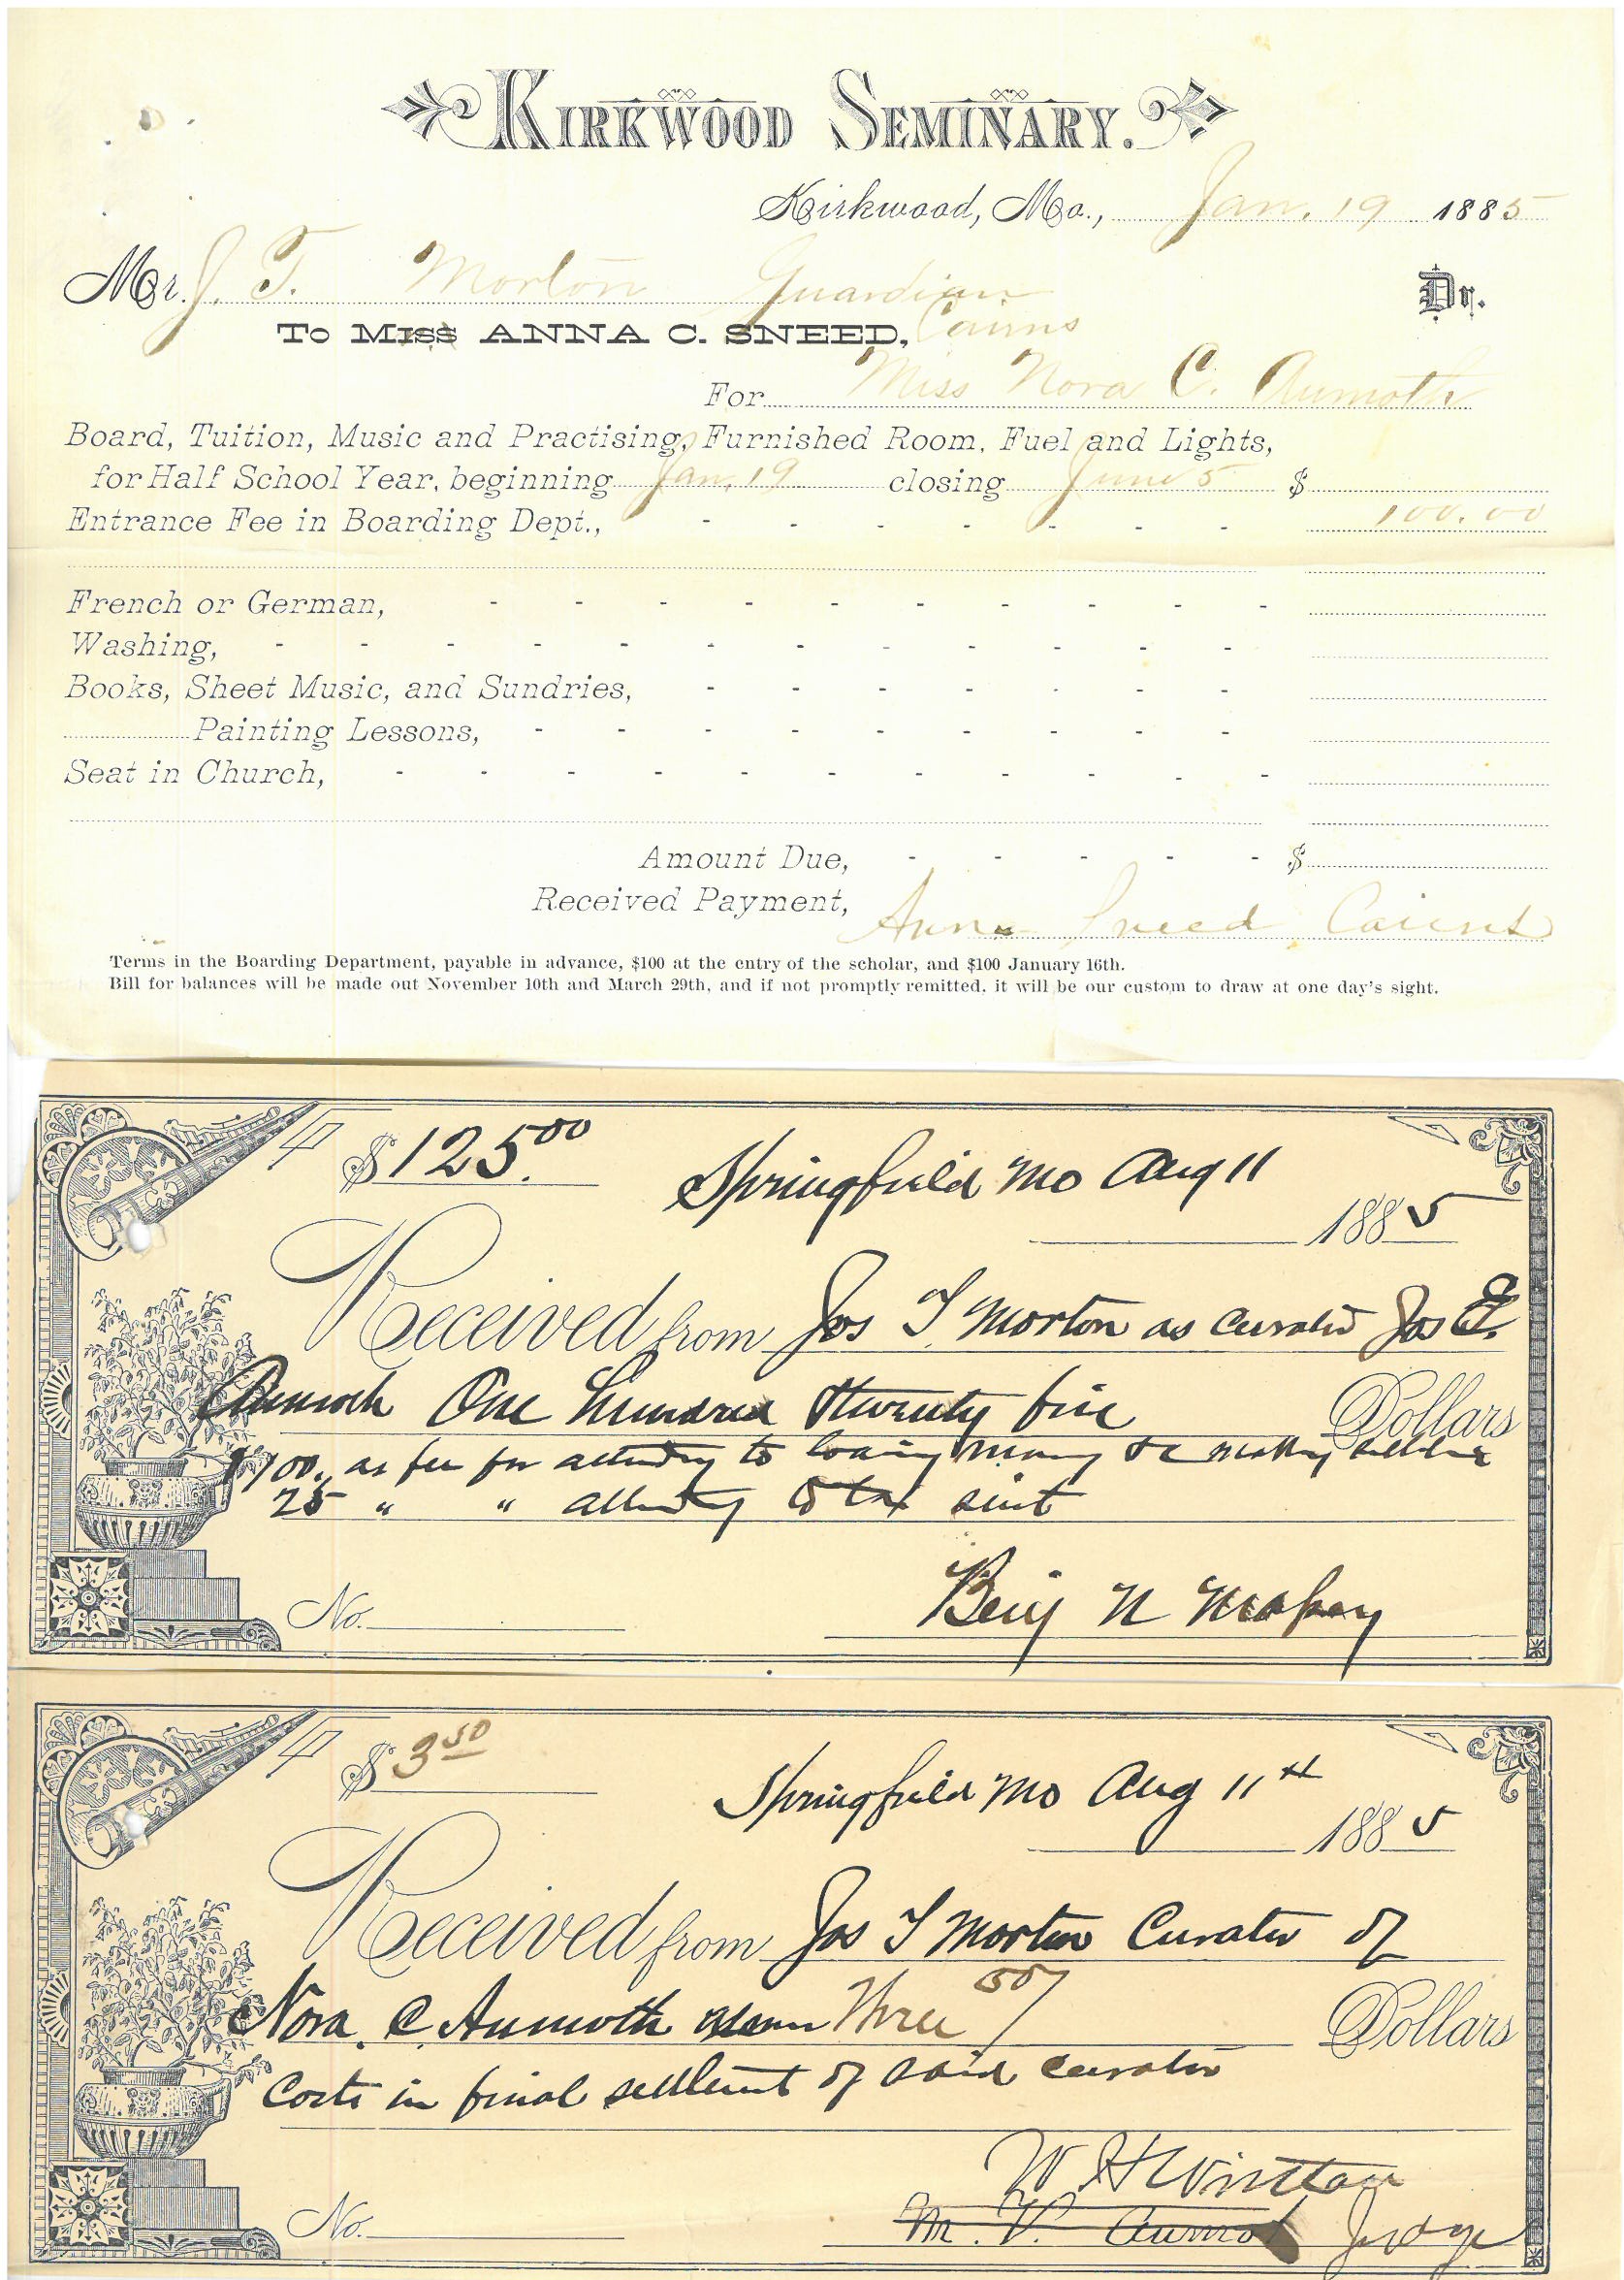 KIRKWOOD SEMINARY.
Kirkwood, Mo., Jan. 19 1885
Mr. J. T. Morton Guardian Dr.
To Miss ANNA C. SNEED, Cairns
For Miss Nora C. Aumoth
Board, Tuition, Music and Practising, Furnished Room, Fuel and Lights,
for Half School Year, beginning Jan. 19 closing June 5 $
Entrance Fee in Boarding Dept., - - - - - - - 100.00
French or German, - - - - - - - - - -
Washing, - - - - - - - - - - - -
Books, Sheet Music, and Sundries, - - - - - - -
Painting Lessons, - - - - - - - - -
Seat in Church, - - - - - - - - - - -
Amount Due, - - - - - $
Received Payment, Anna Sneed Cairns
Terms in the Boarding Department, payable in advance, $100 at the entry of the scholar, and $100 January 16th.
Bill for balances will be made out November 10th and March 29th, and if not promptly remitted, it will be our custom to draw at one day's sight.
$125.00
Springfield Mo Aug 11
1885
Received from Jos T Morton as Curator Jos E.
Aumoth One hundred & twenty five Dollars
$100. as fee for attending to loaning money & making
25 " " attending to tax suit
Benj N
No.
$3 50
Springfield Mo Aug 11th
1885
Received from Jos T Morton Curator of
Nora C Aumoth Three 50/ Dollars
Costs in final settlement of said curator
W H
No. M. V. Judge